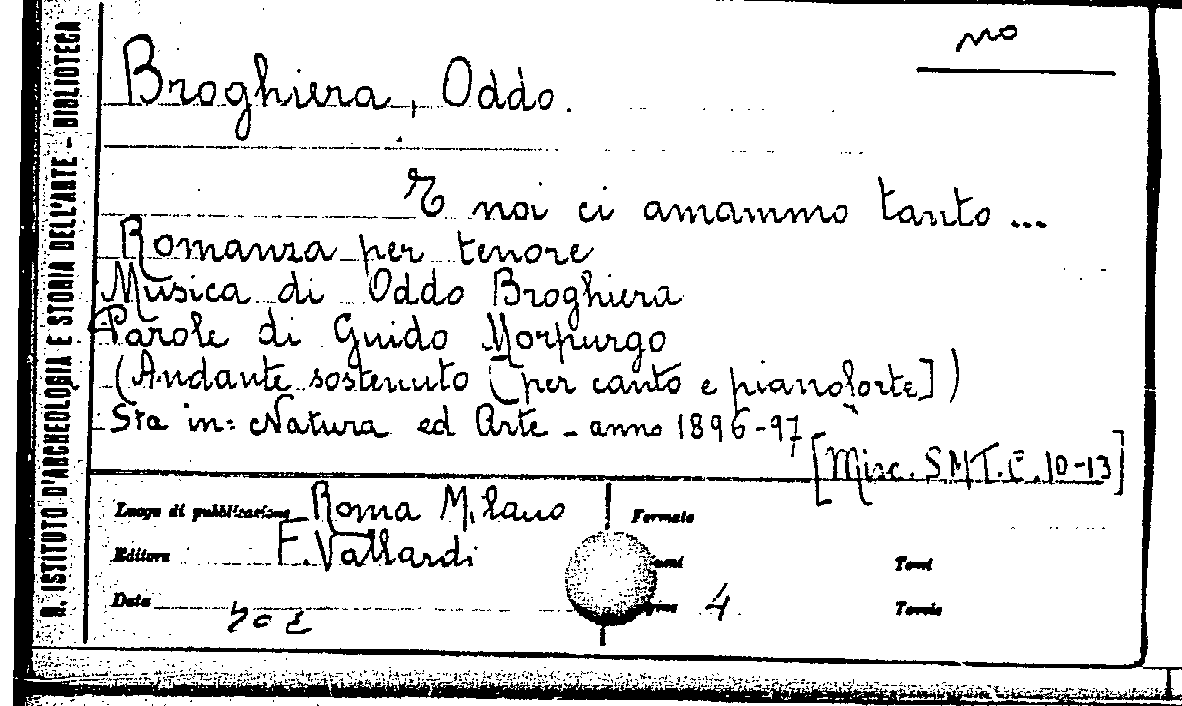 R. ISTITUTO D'ARCHEOLOGIA E STORIA DELL'ARTE - BIBLIOTECA
no
Broghiera, Oddo.
E noi ci amammo tanto ...
Romanza per tenore
Musica di Oddo Broghiera
Parole di Guido Morpurgo
(Andante sostenuto [per canto e pianoforte])
Sta in: Natura ed Arte - anno 1896-97
[Misc. S.M.T.C. 10-13]
Luogo di pubblicazione Roma Milano Formato
Editore F. Vallardi Tomi
Data Pagine 4 Tavole